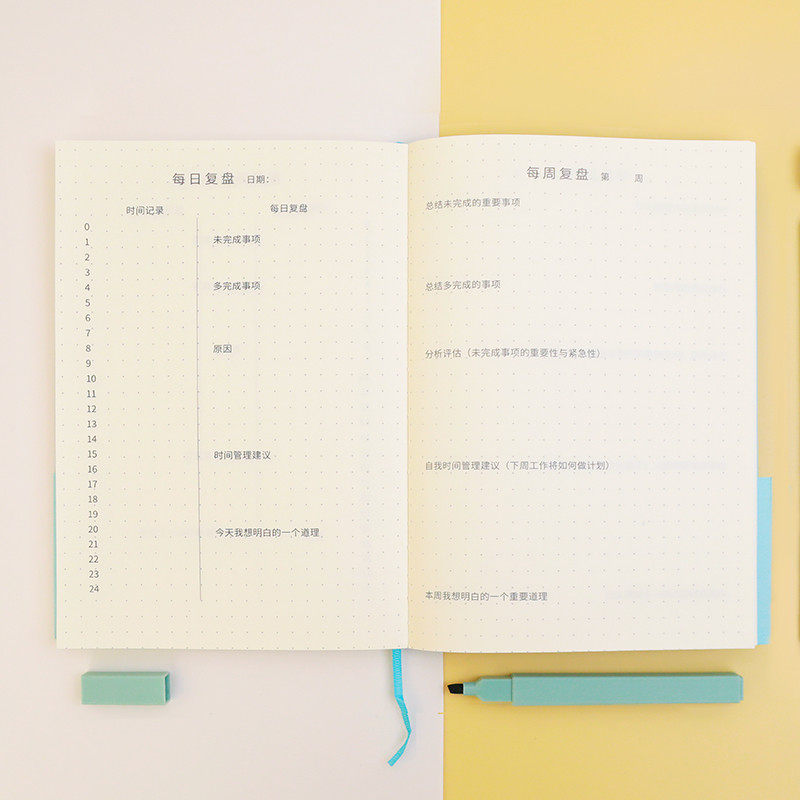 每日复盘 日期:
时间记录 每日复盘
0
1
2
3
4
5
6
7
8
9
10
11
12
13
14
15
16
17
18
19
20
21
22
23
24
未完成事项
多完成事项
原因
时间管理建议
今天我想明白的一个道理
每周复盘 第 周
总结未完成的重要事项
总结多完成的事项
分析评估（未完成事项的重要性与紧急性）
自我时间管理建议（下周工作将如何做计划）
本周我想明白的一个重要道理